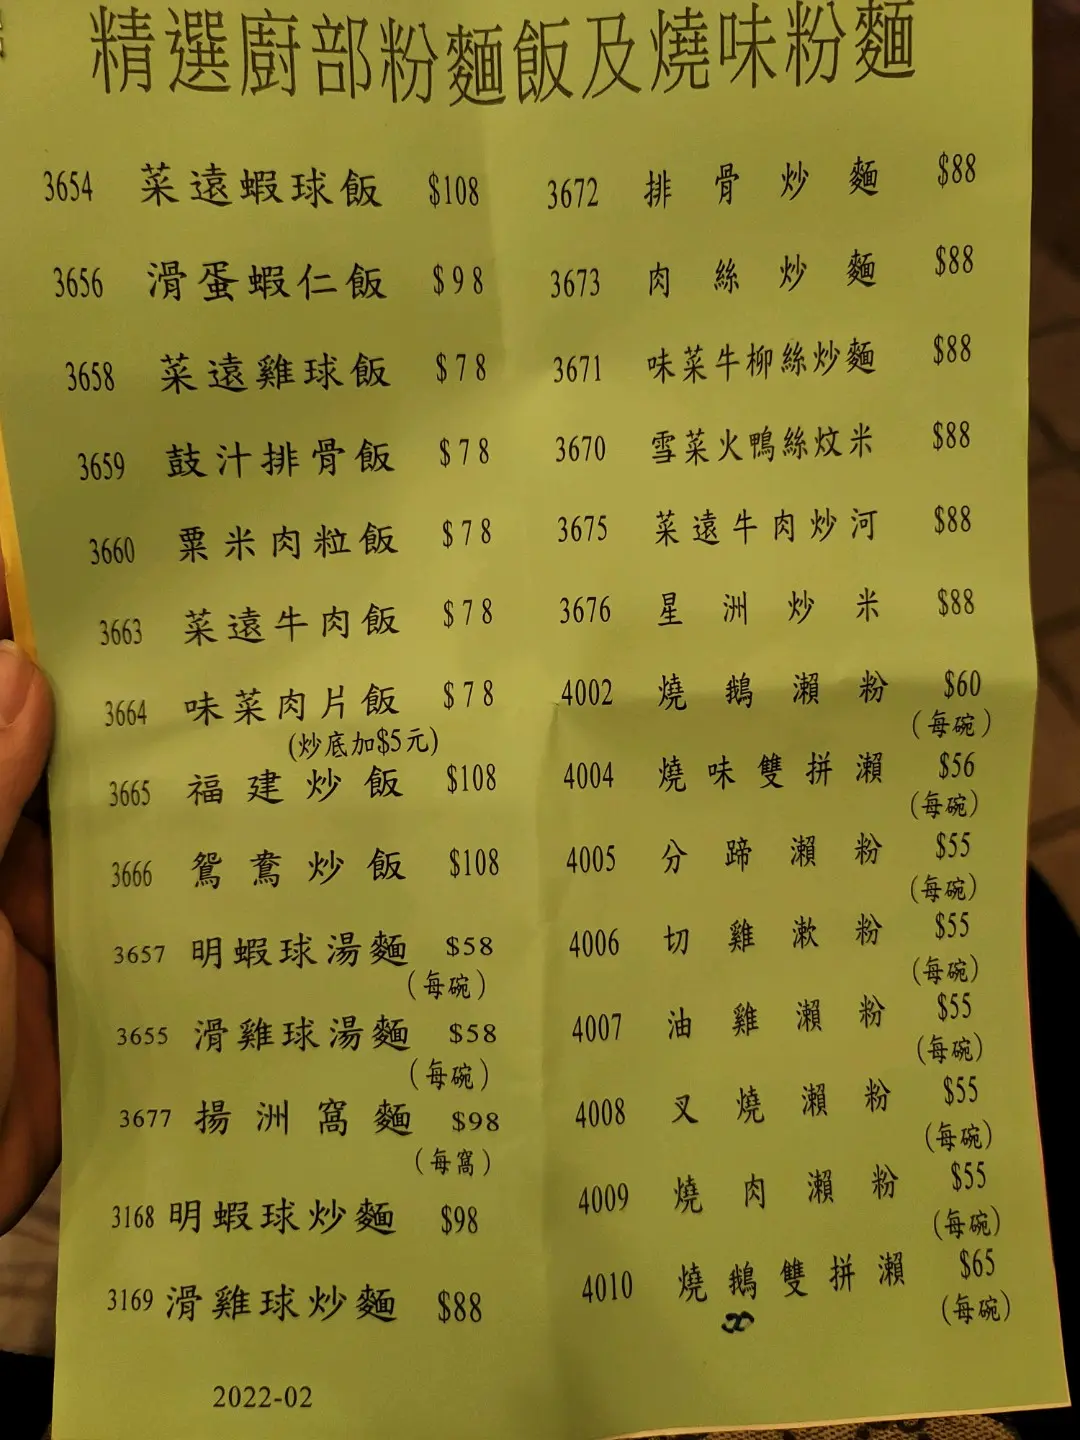 精選廚部粉麵飯及燒味粉麵
3654 菜遠蝦球飯 $108
3656 滑蛋蝦仁飯 $98
3658 菜遠雞球飯 $78
3659 鼓汁排骨飯 $78
3660 粟米肉粒飯 $78
3663 菜遠牛肉飯 $78
3664 味菜肉片飯 $78
(炒底加$5元)
3665 福建炒飯 $108
3666 鴛鴦炒飯 $108
3657 明蝦球湯麵 $58
(每碗)
3655 滑雞球湯麵 $58
(每碗)
3677 揚洲窩麵 $98
(每窩)
3168 明蝦球炒麵 $98
3169 滑雞球炒麵 $88
2022-02
3672 排骨炒麵 $88
3673 肉絲炒麵 $88
3671 味菜牛柳絲炒麵 $88
3670 雪菜火鴨絲炆米 $88
3675 菜遠牛肉炒河 $88
3676 星洲炒米 $88
4002 燒鵝瀨粉 $60
(每碗)
4004 燒味雙拼瀨 $56
(每碗)
4005 分蹄瀨粉 $55
(每碗)
4006 切雞漱粉 $55
(每碗)
4007 油雞瀨粉 $55
(每碗)
4008 叉燒瀨粉 $55
(每碗)
4009 燒肉瀨粉 $55
(每碗)
4010 燒鵝雙拼瀨 $65
(每碗)